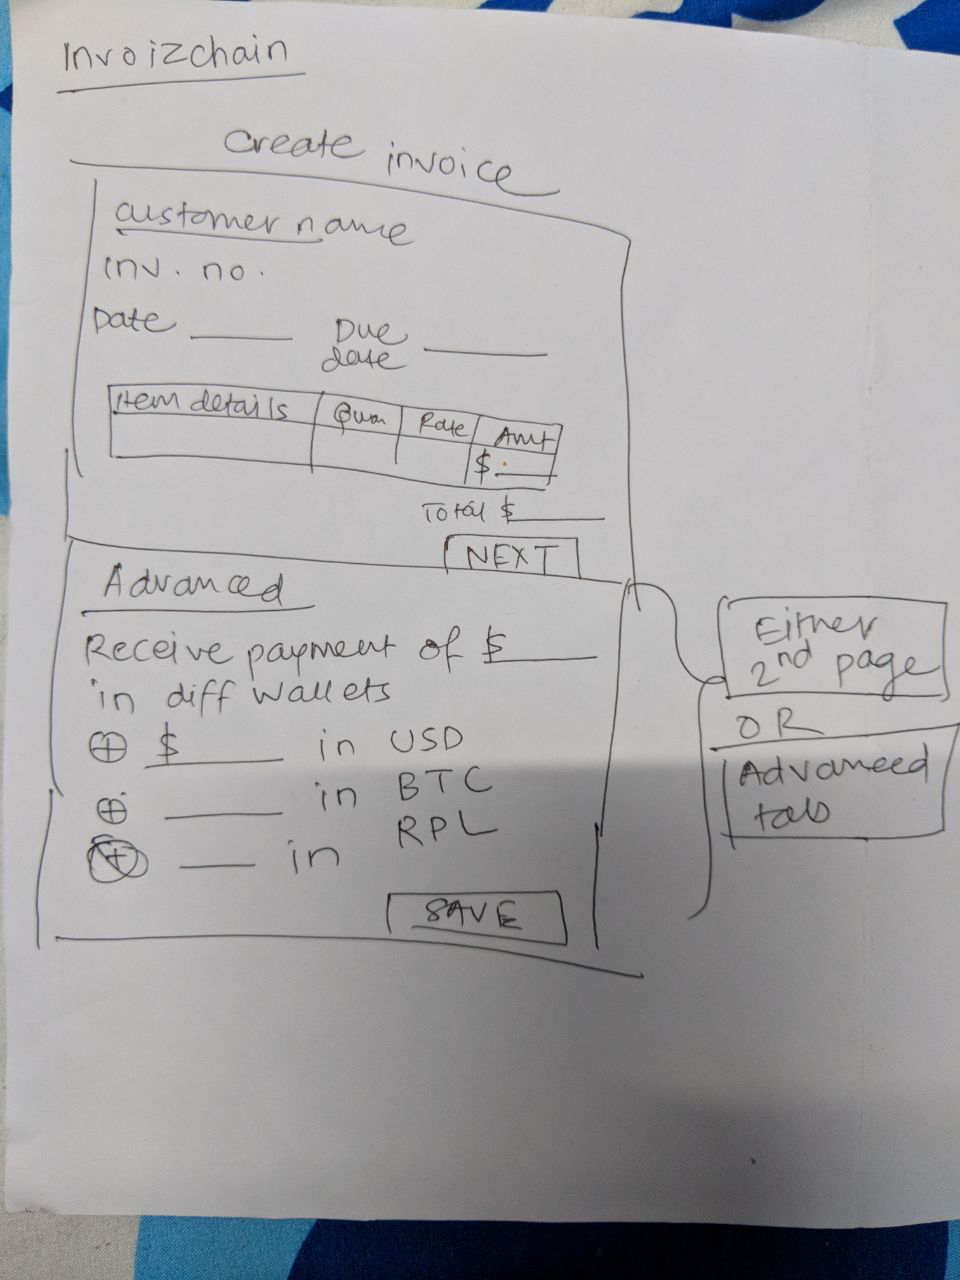 Invoizchain
Create invoice
customer name
Inv. no.
Date ____ Due date ____
Item details Quan Rate Amt
$ ____
Total $ ____
NEXT
Advanced
Receive payment of $ ____
in diff wallets
⊕ $ ____ in USD
⊕ ____ in BTC
⊕ ____ in RPL
SAVE
Either
2nd page
OR
Advanced
tab